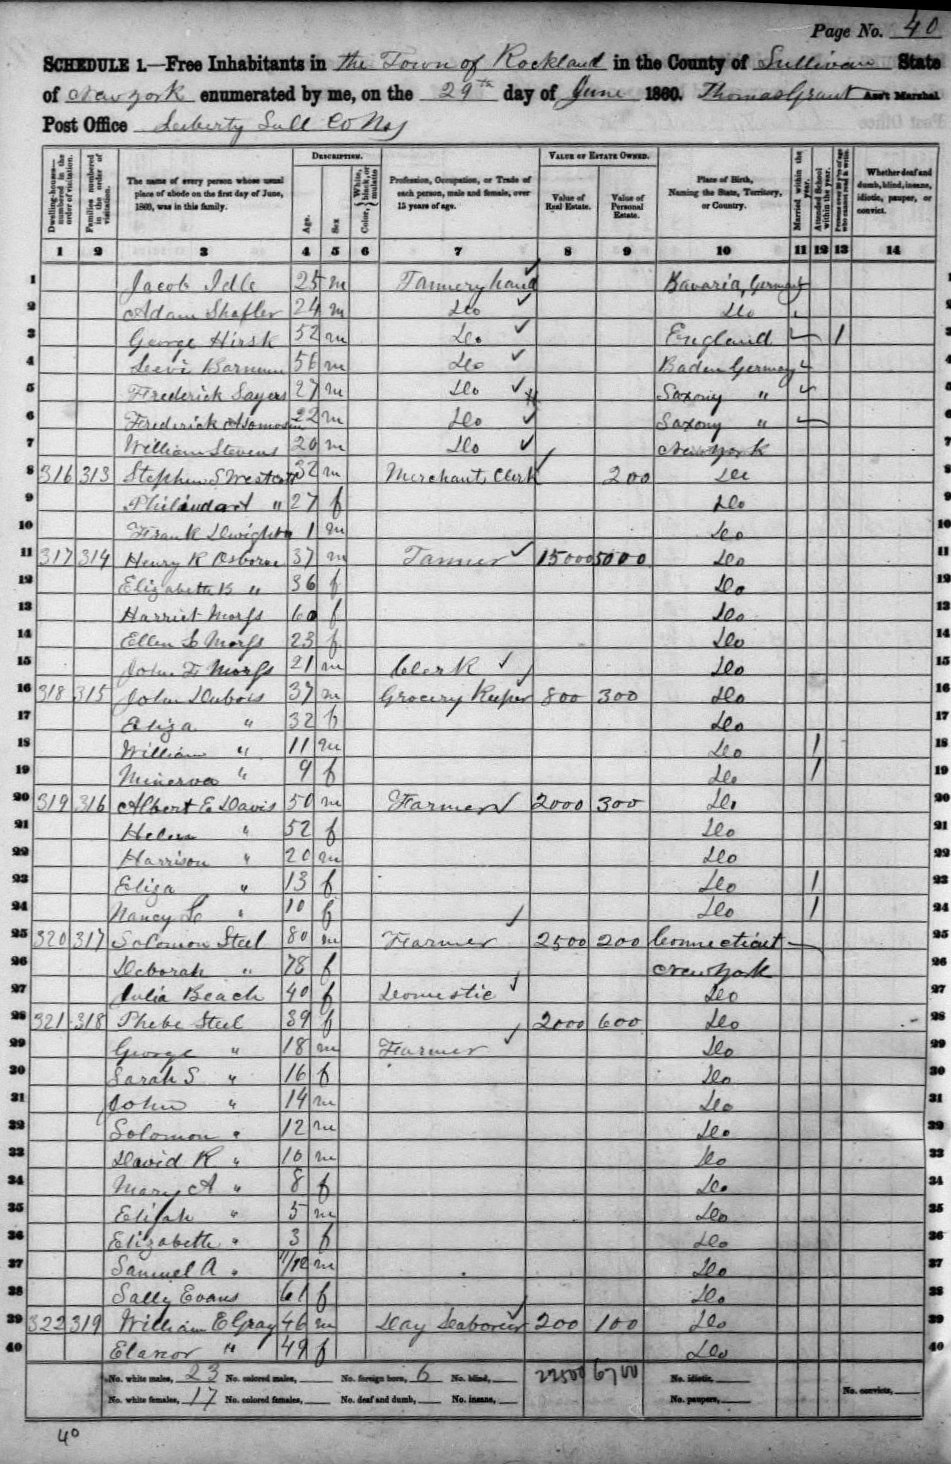 Page No. 40
SCHEDULE 1.—Free Inhabitants in the Town of Rockland in the County of Sullivan State
of New York enumerated by me, on the 29th day of June 1860. Thomas Grant Ass't Marshal
Post Office Liberty Sull Co N.Y
Dwelling-houses—numbered in the order of visitation. Families numbered in the order of visitation. The name of every person whose usual place of abode on the first day of June, 1860, was in this family. DESCRIPTION. Age. Sex. Color, White, black, or mulatto. Profession, Occupation, or Trade of each person, male and female, over 15 years of age. VALUE OF ESTATE OWNED. Value of Real Estate. Value of Personal Estate. Place of Birth, Naming the State, Territory, or Country. Married within the year. Attended School within the year. Persons over 20 y'rs of age who cannot read & write. Whether deaf and dumb, blind, insane, idiotic, pauper, or convict.
1 2 3 4 5 6 7 8 9 10 11 12 13 14
1 Jacob Idle 25 m Tannery hand Bavaria, Germany 1
2 Adam Shafler 24 m Do Do 2
3 George Hirsk 52 m Do England 1 3
4 Levi Barnum 56 m Do Baden Germany 4
5 Frederick Sayers 27 m Do Saxony " 5
6 Frederick 22 m Do Saxony " 6
7 William Stevens 20 m Do New York 7
8 316 313 Stephen S Westcott 32 m Merchant Clerk 200 Do 8
9 " 27 f Do 9
10 Frank Dwight 1 m Do 10
11 317 314 Henry R Osborne 37 m Tanner 15000 5000 Do 11
12 Elizabeth B " 36 f Do 12
13 Harriet Morss 60 f Do 13
14 Ellen L Morss 23 f Do 14
15 John F Morss 21 m Clerk Do 15
16 318 315 John Dubois 37 m Grocery Keeper 800 300 Do 16
17 Eliza " 32 f Do 17
18 William " 11 m Do 1 18
19 Minerva " 9 f Do 1 19
20 319 316 Albert E Davis 50 m Farmer 2000 300 Do 20
21 Helen " 52 f Do 21
22 Harrison " 20 m Do 22
23 Eliza " 13 f Do 1 23
24 Nancy L " 10 f Do 1 24
25 320 317 Solomon Steel 80 m Farmer 2500 200 Connecticut 25
26 Deborah " 78 f New York 26
27 Julia Beach 40 f Domestic Do 27
28 321 318 Phebe Steel 39 f 2000 600 Do 28
29 George " 18 m Farmer Do 29
30 Sarah S " 16 f Do 30
31 John " 14 m Do 31
32 Solomon " 12 m Do 32
33 David R " 10 m Do 33
34 Mary A " 8 f Do 34
35 Elijah " 5 m Do 35
36 Elizabeth " 3 f Do 36
37 Samuel A " 11/12 m Do 37
38 Sally Evans 61 f Do 38
39 322 319 William E Gray 46 m Day Laborer 200 100 Do 39
40 Elanor " 49 f Do 40
No. white males, 23 No. colored males, No. foreign born, 6 No. blind, 22500 6700 No. idiotic,
No. white females, 17 No. colored females, No. deaf and dumb, No. insane, No. paupers, No. convicts,
40